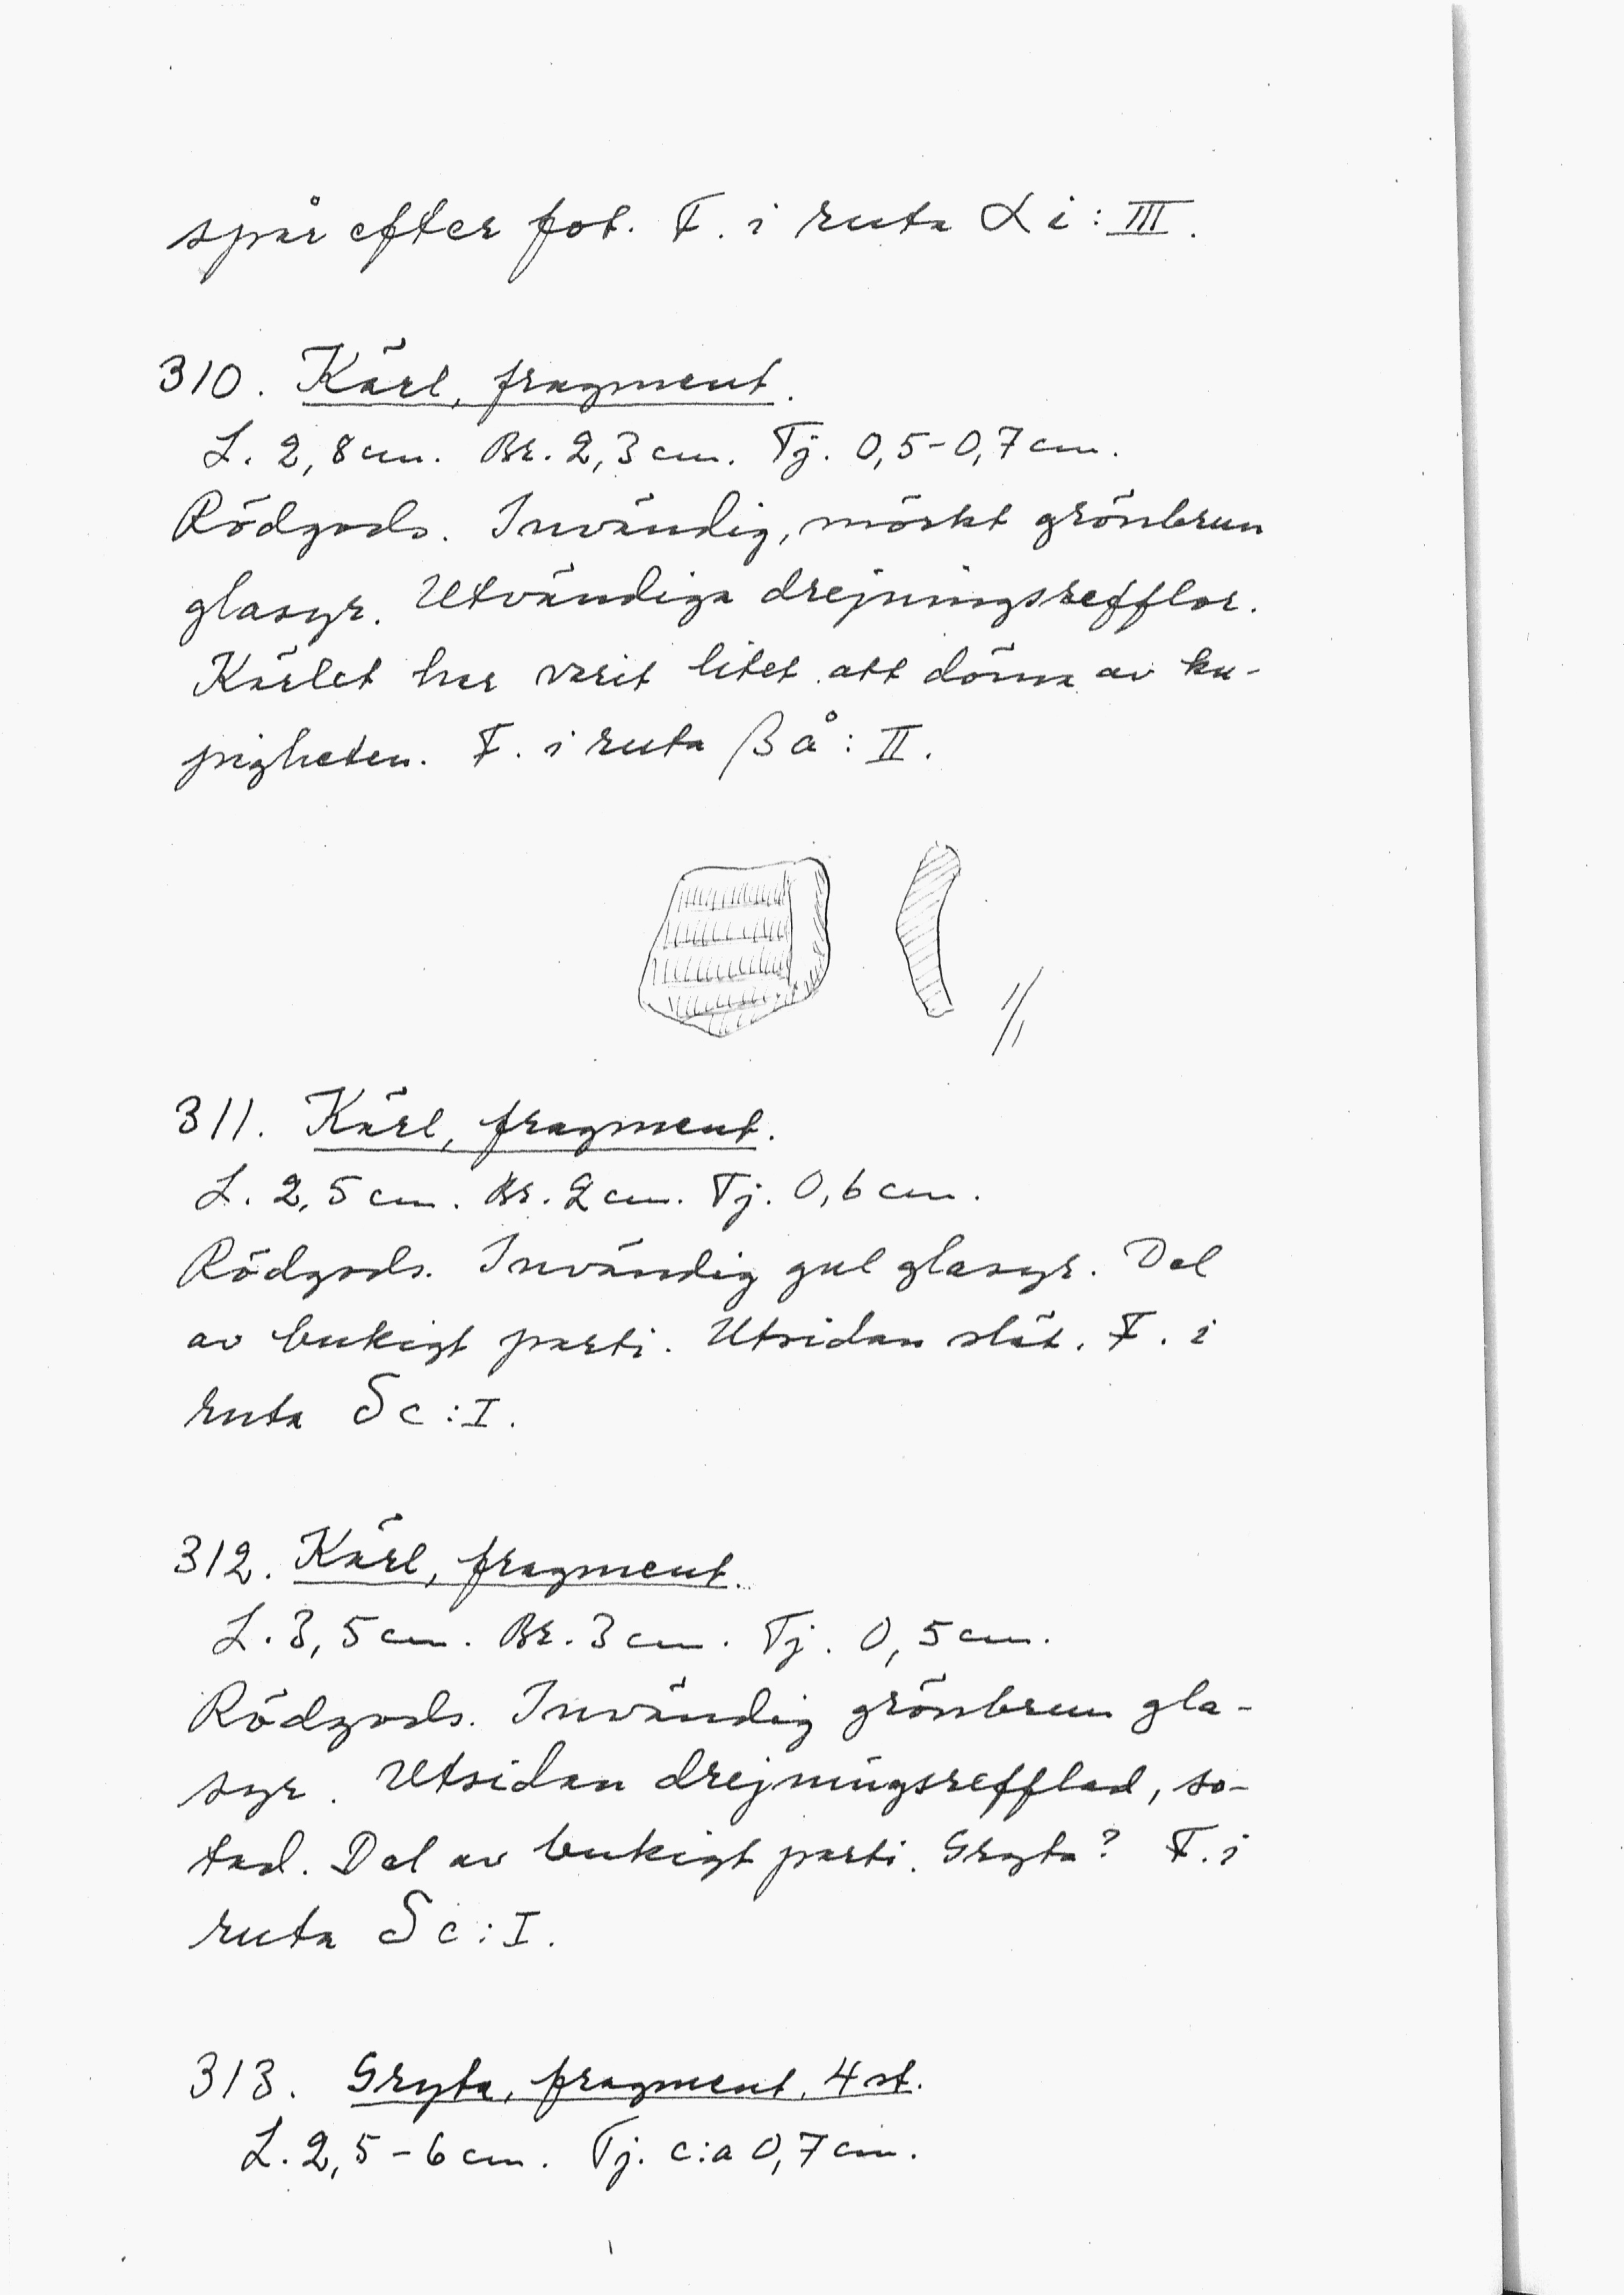 spår efter fot. F. i ruta α i : III.
310. Kärl, fragment.
L. 2,8 cm. Br. 2,3 cm. Tj. 0,5-0,7 cm.
Rödgods. Invändig, mörkt grönbrun
glasyr. Utvändiga drejningsrefflor.
Kärlet har varit litet att döma av ku-
pigheten. F. i ruta β å : II.
1/1
311. Kärl, fragment.
L. 2,5 cm. Br. 2 cm. Tj. 0,6 cm.
Rödgods. Invändig gul glasyr. Del
av bukigt parti. Utsidan slät. F. i
ruta δ c : I.
312. Kärl, fragment.
L. 3,5 cm. Br. 3 cm. Tj. 0,5 cm.
Rödgods. Invändig grönbrun gla-
syr. Utsidan drejningsrefflad, so-
tad. Del av bukigt parti. Gryta? F. i
ruta δ c : I.
313. Gryta, fragment, 4 st.
L. 2,5 - 6 cm. Tj. c:a 0,7 cm.